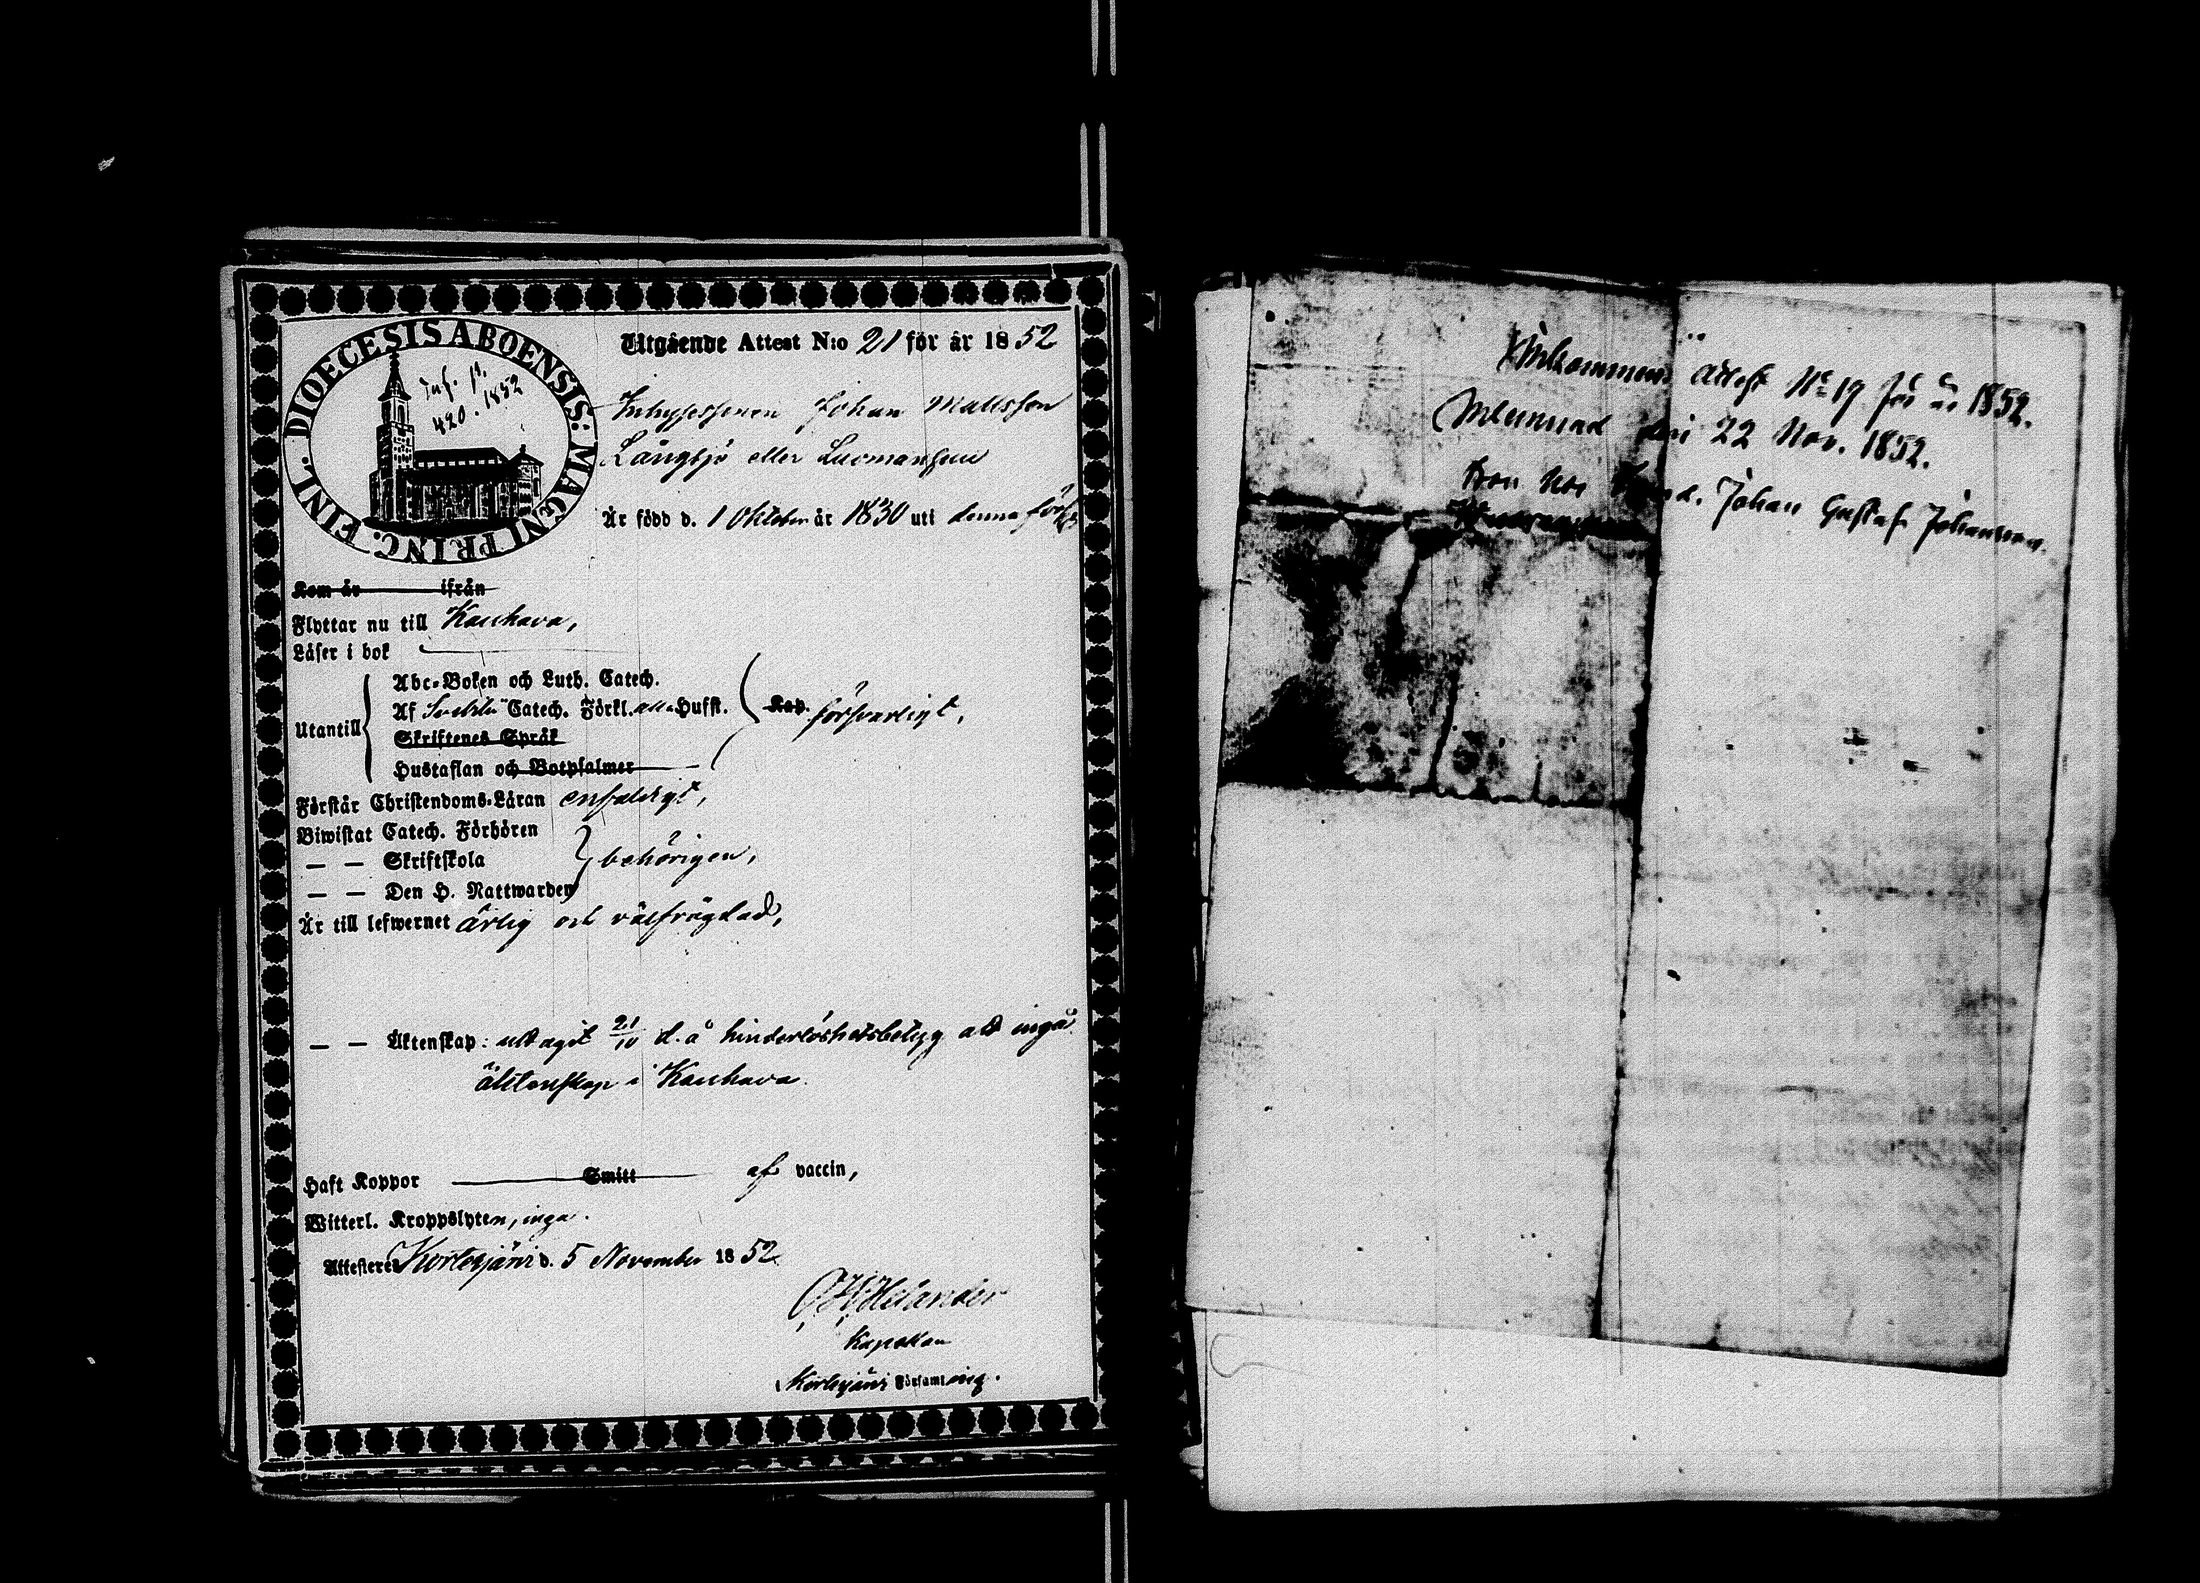 DIOECESIS ABOENSIS: MAGNI PRINC. FINL.
Inf. p.
420. 1852
Utgående Attest N:o 21 för år 1852
Inhysessonen Johan Mattsson
Långsjö eller Luomansuu
Är född d. 1 Oktober år 1830 uti denna förs.
Kom år ifrån
Flyttar nu till Kauhava,
Läser i bok
Abc-Boken och Luth. Catech.
Af Svebilii Catech. Förkl. Hufst. Kap. försvarligt,
Utantill
Skriftenes Språk
Hustaflan och Botpsalmer
Förstår Christendoms-Läran enfaldigt,
Biwistat Catech. Förhören
— — Skriftskola behörigen,
— — Den H. Nattwarden
Är till lefwernet ärlig och välfrägdad,
— — Äktenskap: uttagit 21/10 d. å hinderlöshetsbetyg att ingå
äktenskap i Kauhava.
Haft Koppor Smitt af vaccin,
Witterl. Kroppslyten, inga.
Attesterer Kortesjärvi d. 5 November 1852.
Helander
Kapellan
Kortesjärvi Församling.
Inkommen Attest No 19 för år 1852.
Inlemnad den 22 Nov. 1852.
Johan Gustaf Johansson.